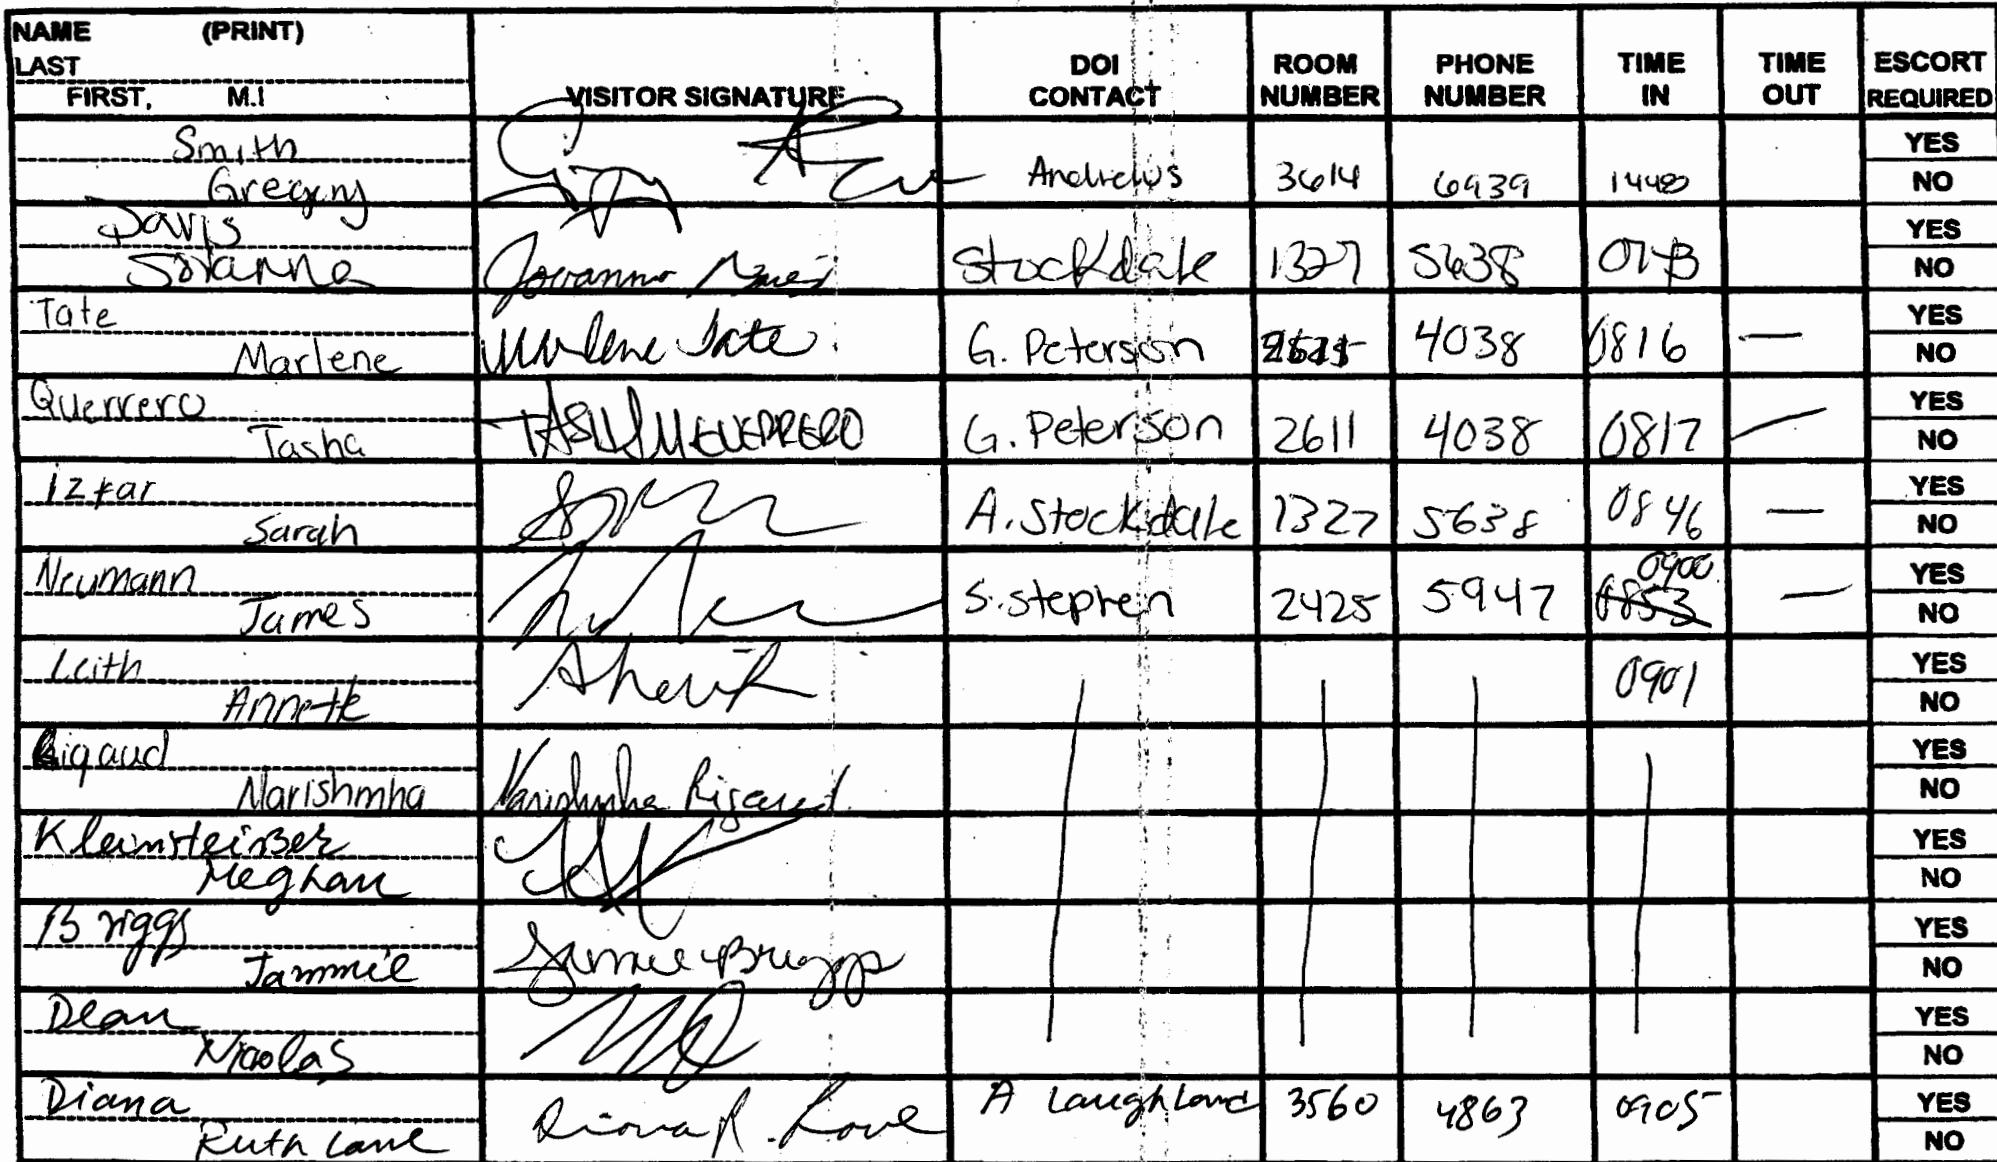 NAME (PRINT)
LAST
FIRST, M.I
VISITOR SIGNATURE
DOI CONTACT
ROOM NUMBER
PHONE NUMBER
TIME IN
TIME OUT
ESCORT REQUIRED
Smith
Gregory
Andrews 3614 6939
YES
NO
Davis
Stockdale 1327 5638
YES
NO
Tate
Marlene
Marlene Tate
G. Peterson 4038 0816 —
YES
NO
Querrero
Tasha
G. Peterson 2611 4038 0817 —
YES
NO
Sarah
A. Stockdale 1327 5638 0846 —
YES
NO
Neumann
James
S. Stephen 2425 5947 0900 0853 —
YES
NO
Leith
Annette
0901
YES
NO
Rigaud
Narishmha
Narishmha Rigaud
YES
NO
Meghan
YES
NO
Briggs
Jammie
Jammie Briggs
YES
NO
Dean
Nicolas
YES
NO
Diana
Ruth Lane
Diana R. Lane
A Laughland 3560 4863 0905
YES
NO